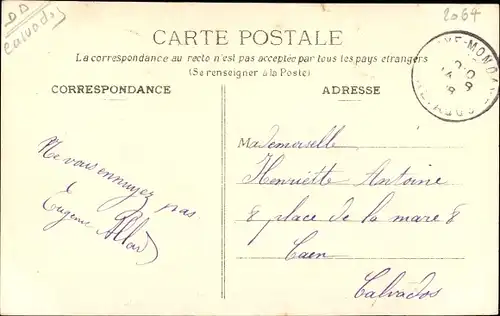 DD
Calvados
2064
CARTE POSTALE
La correspondance au recto n'est pas acceptée par tous les pays étrangers
(Se renseigner à la Poste)
CORRESPONDANCE
ADRESSE
Ne vous ennuyez pas
Eugenie Allard
Mademoiselle
Henriette Antoine
8 place de la mare 8
Caen
Calvados